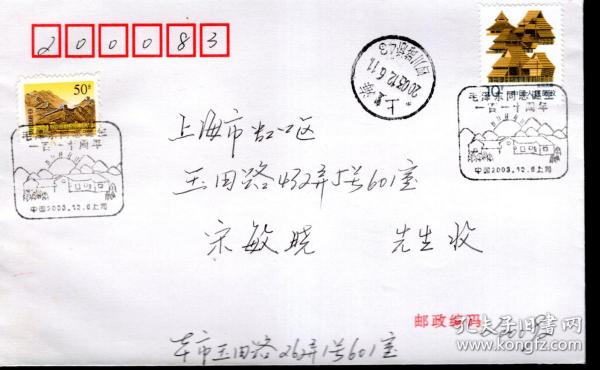 200083
50分
10分 中国人民邮政
上海
2003.12.6.11
毛泽东同志诞生
一百一十周年
中国2003.12.6上海
毛泽东同志诞生
一百一十周年
中国2003.12.6上海
上海市虹口区
玉田路432弄5号601室
宋敏晓 先生收
邮政编码
孔夫子旧书网
www.kongfz.com
本市玉田路262弄1号601室